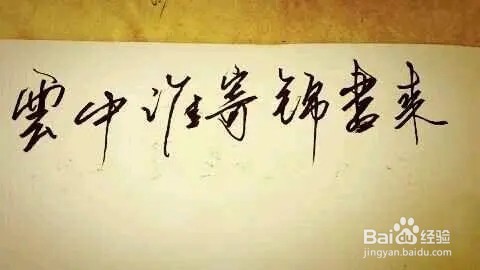 雲中谁寄锦書来
Baidu经验
jingyan.baidu.com